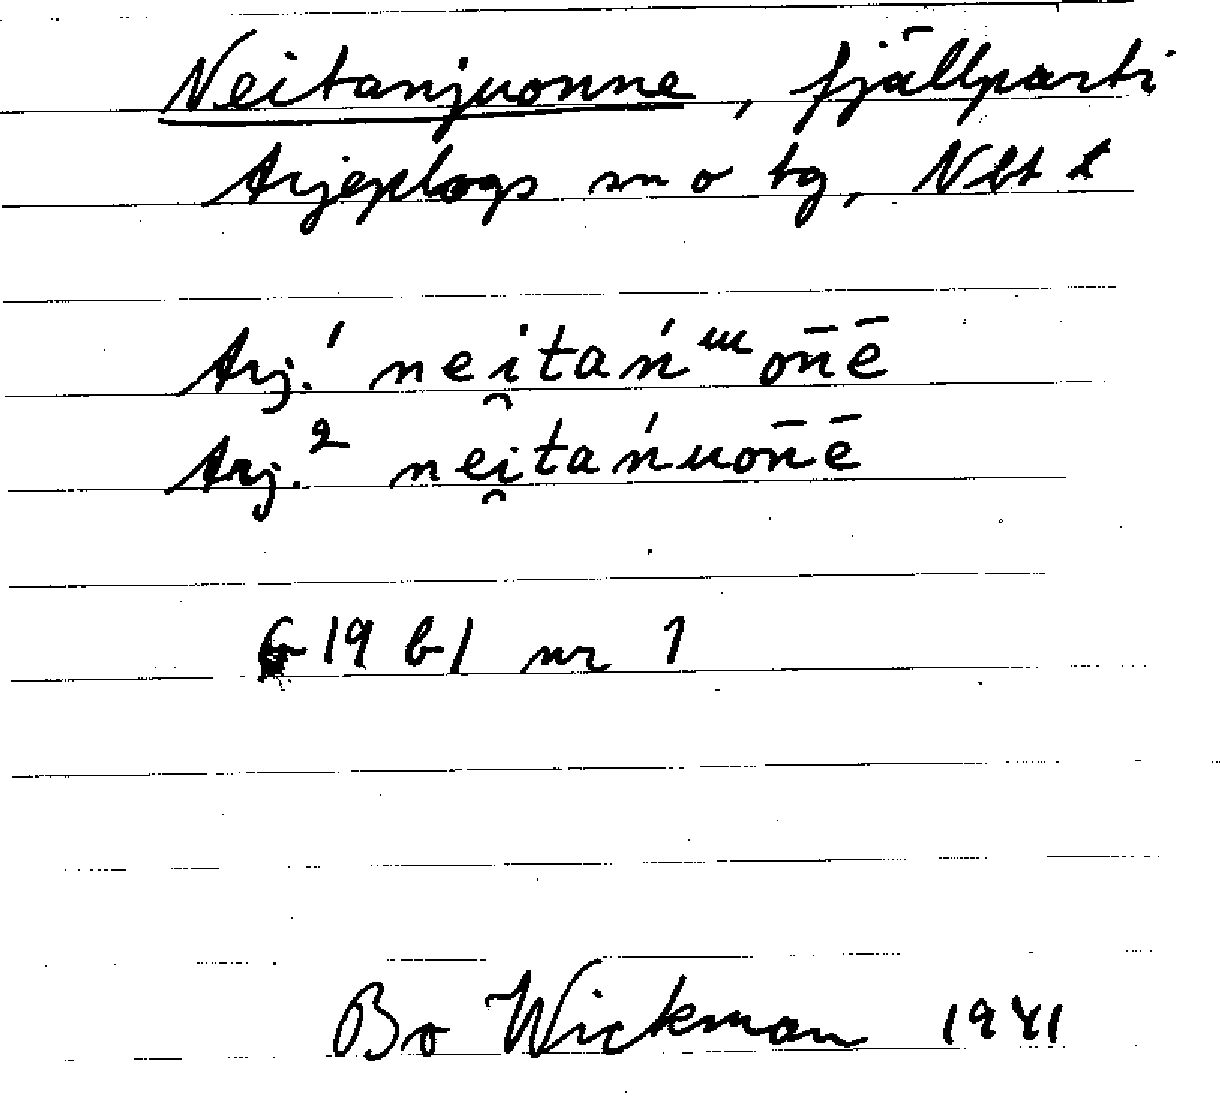 Neitanjuonne, fjällparti
Arjeplogs sn o tg, Nbt l
Arj.¹ nei̯tań ᵚon̄ē
Arj.² nei̯tańuon̄ē
G 19 bl nr 1
Bo Wickman 1941